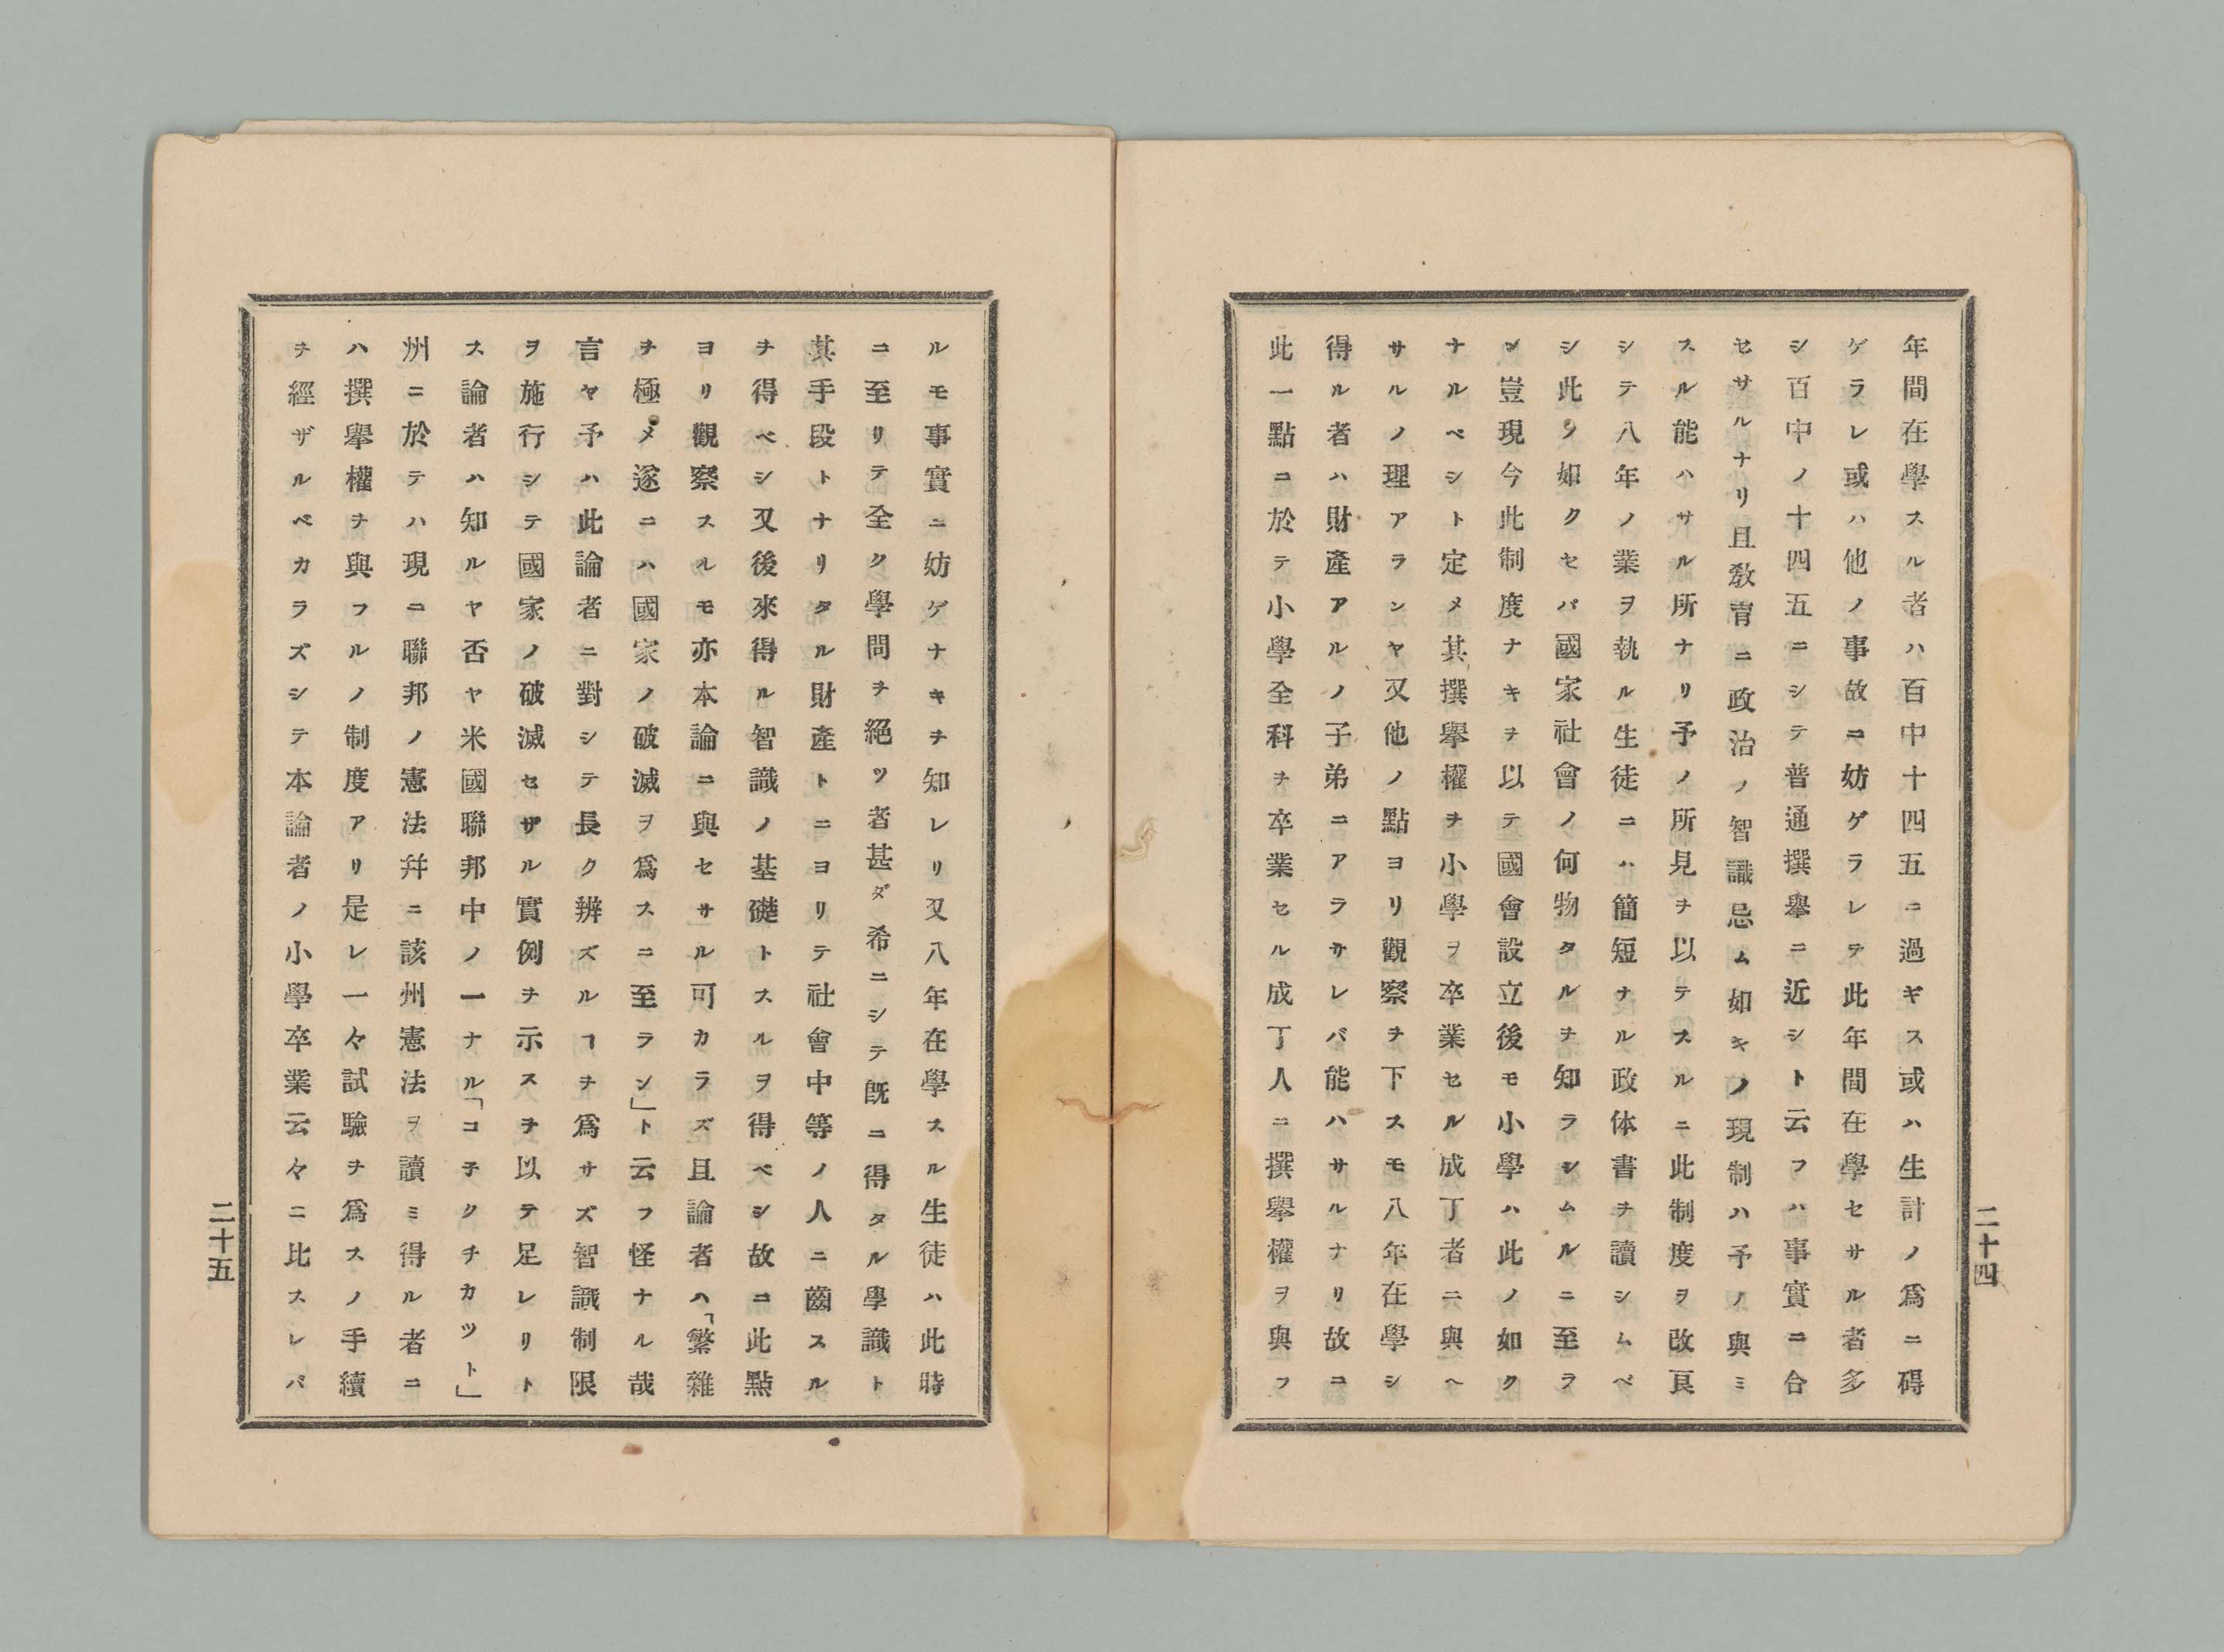 年間在學スル者ハ百中十四五ニ過ギス或ハ生計ノ爲ニ碍
ゲラレ或ハ他ノ事故ニ妨ゲラレテ此年間在學セサル者多
シ百中ノ十四五ニシテ普通撰擧ニ近シト云フハ事實ニ合
セサルナリ且敎育ニ政治ノ智識忌ム如キノ現制ハ予ノ與ミ
スル能ハサル所ナリ予ノ所見ヲ以テスルニ此制度ヲ改良
シテ八年ノ業ヲ執ル生徒ニハ簡短ナル政体書ヲ讀シムベ
シ此ノ如クセバ國家社會ノ何物タルヲ知ラシムルニ至ラ
ン豈現今此制度ナキヲ以テ國會設立後モ小學ハ此ノ如ク
ナルベシト定メ其撰擧權ヲ小學ヲ卒業セル成丁者ニ與ヘ
サルノ理アランヤ又他ノ點ヨリ觀察ヲ下スモ八年在學シ
得ル者ハ財產アルノ子弟ニアラサレバ能ハサルナリ故ニ
此一點ニ於テ小學全科ヲ卒業セル成丁人ニ撰擧權ヲ與フ
二十四
ルモ事實ニ妨ゲナキヲ知レリ又八年在學スル生徒ハ此時
ニ至リテ全ク學問ヲ絕ツ者甚ダ希ニシテ既ニ得タル學識ト
其手段トナリタル財產トニヨリテ社會中等ノ人ニ齒スル
ヲ得ベシ又後來得ル智識ノ基礎トスルヲ得ベシ故ニ此點
ヨリ觀察スルモ亦本論ニ與セサル可カラズ且論者ハ「繁雜
ヲ極メ遂ニハ國家ノ破滅ヲ爲スニ至ラン」ト云フ怪ナル哉
言ヤ予ハ此論者ニ對シテ長ク辨ズルヿヲ爲サズ智識制限
ヲ施行シテ國家ノ破滅セザル實例ヲ示スヲ以テ足レリト
ス論者ハ知ルヤ否ヤ米國聯邦中ノ一ナル「コ子クチカツト」
州ニ於テハ現ニ聯邦ノ憲法幷ニ該州憲法ヲ讀ミ得ル者ニ
ハ撰擧權ヲ與フルノ制度アリ是レ一々試驗ヲ爲スノ手續
ヲ經ザルベカラズシテ本論者ノ小學卒業云々ニ比スレバ
二十五